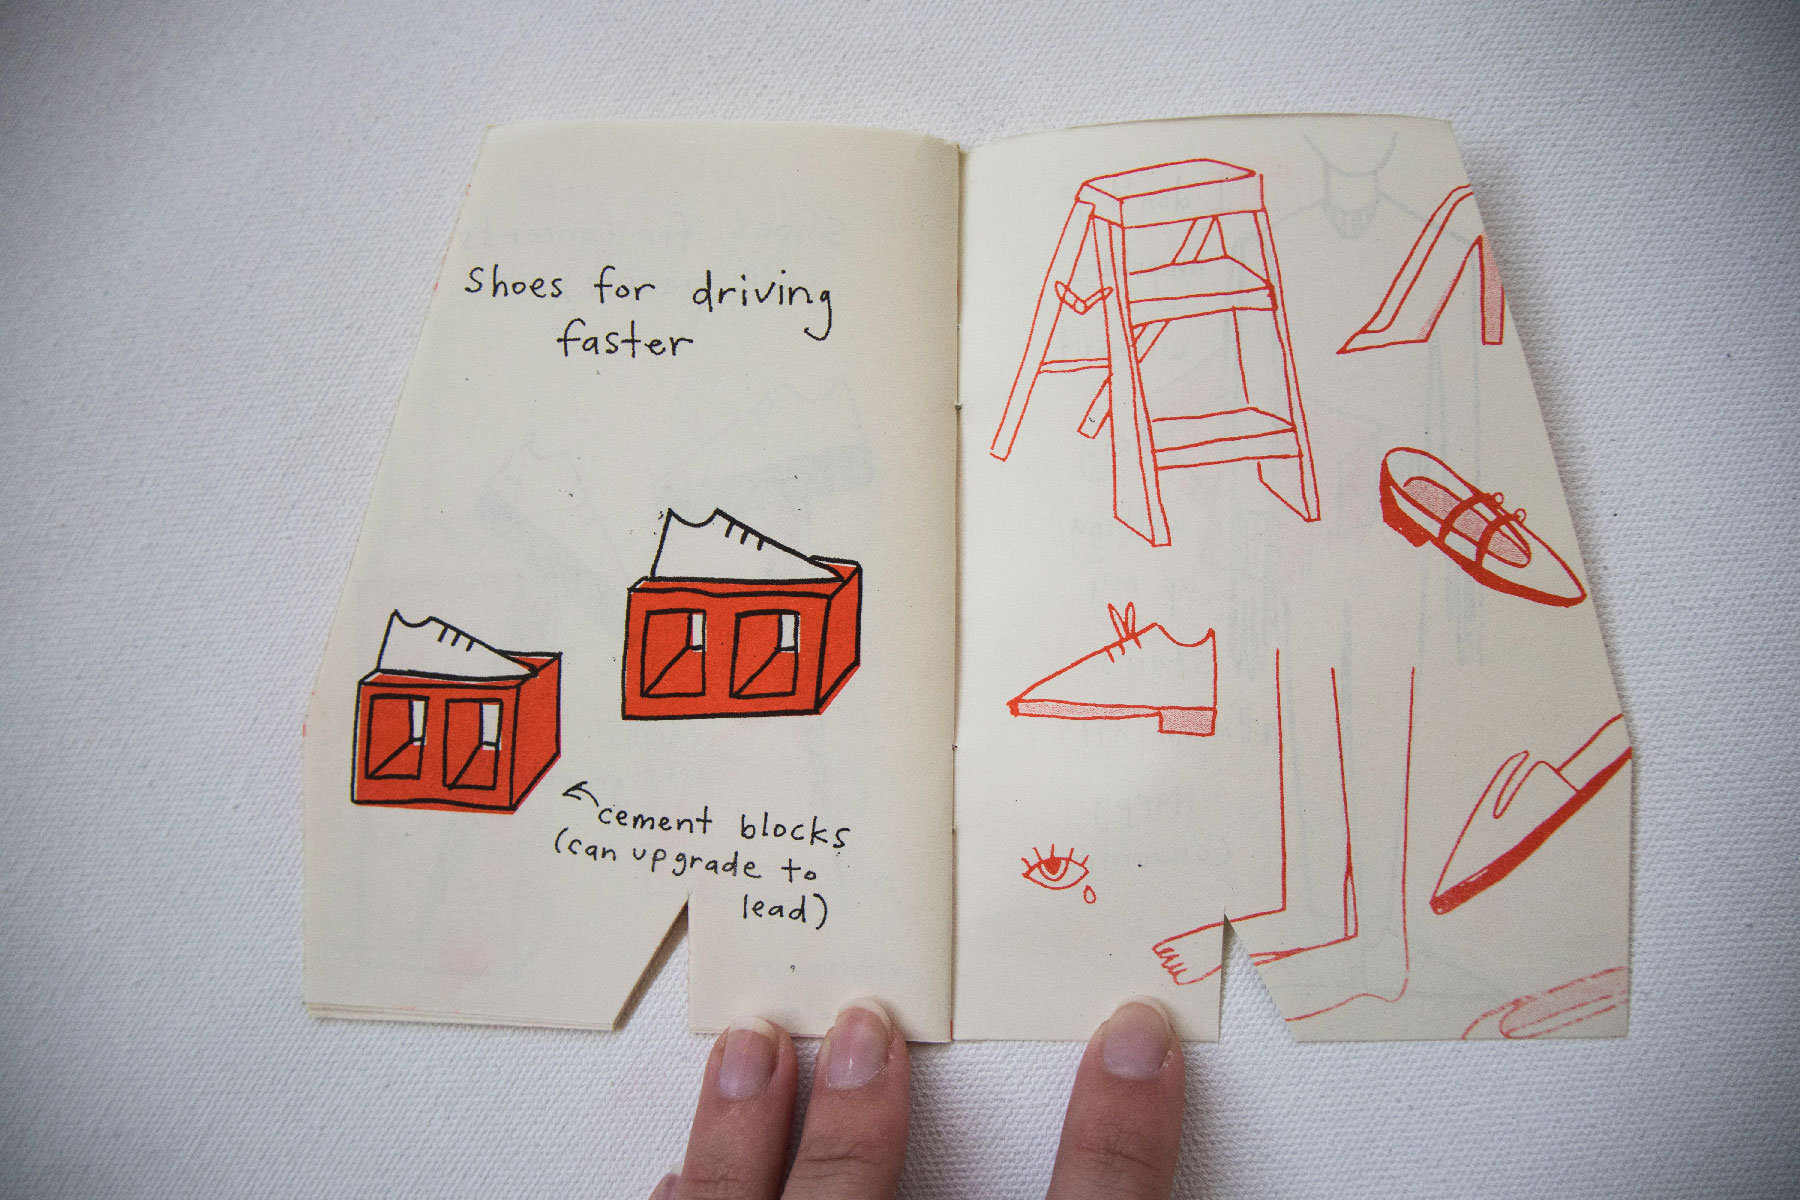 Shoes for driving
faster
cement blocks
(can upgrade to
lead)